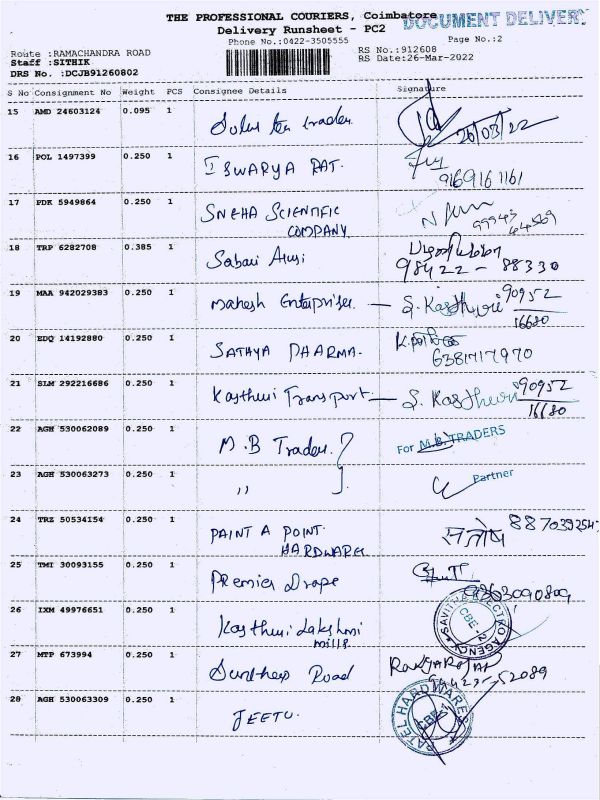 THE PROFESSIONAL COURIERS, Coimbatore
DOCUMENT DELIVERY
Delivery Runsheet - PC2
Phone No.:0422-3505555
Page No.:2
Route :RAMACHANDRA ROAD
RS No.:912608
Staff :SITHIK
RS Date:26-Mar-2022
DRS No. :DCJB91260802
S No Consignment No Weight PCS Consignee Details Signature
15 AMD 24603124 0.095 1 traders 26/03/22
16 POL 1497399 0.250 1 ISWARYA RAT.
9169161161
17 PDK 5949864 0.250 1 SNEHA SCIENTIFIC
COMPANY 99943
64569
18 TRP 6282708 0.385 1 Sabari
98422 - 88330
19 MAA 942029383 0.250 1 Mahesh Enterprises — S. Kasthuri 90952
16680
20 EDQ 14192880 0.250 1 SATHYA DHARMA.
6381717970
21 SLM 292216686 0.250 1 Kasthuri Transport — S. Kasthuri 90952
16680
22 AGH 530062089 0.250 1 M.B Traders. For M.B. TRADERS
23 AGH 530063273 0.250 1 ,, Partner
24 TRZ 50534154 0.250 1 PAINT A POINT. संतोष 8870392547
HARDWARE
25 TMI 30093155 0.250 1 Premier Drape
9363090809
26 IXM 49976651 0.250 1 Kasthuri Lakshmi
mills
SAVITHA ELECTRO AGENCY CBE
27 MTP 673994 0.250 1 Road RANGARAJAN
94423-52089
28 AGH 530063309 0.250 1 JEETU.
PATEL HARDWARES CBE